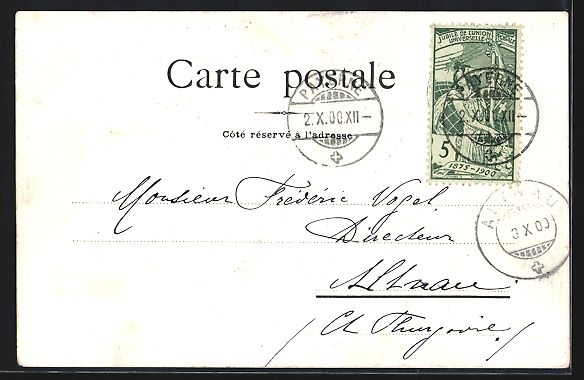 Carte postale
JUBILÉ DE L'UNION
POSTALE
UNIVERSELLE
5
1875-1900
PAYERNE
2.X.00.XII-
PAYERNE
2.X.00.XII-
Côté réservé à l'adresse.
Monsieur Frédéric Vogel
Directeur
Altnau
(Ct Thurgovie)
ALTNAU
3 X 00